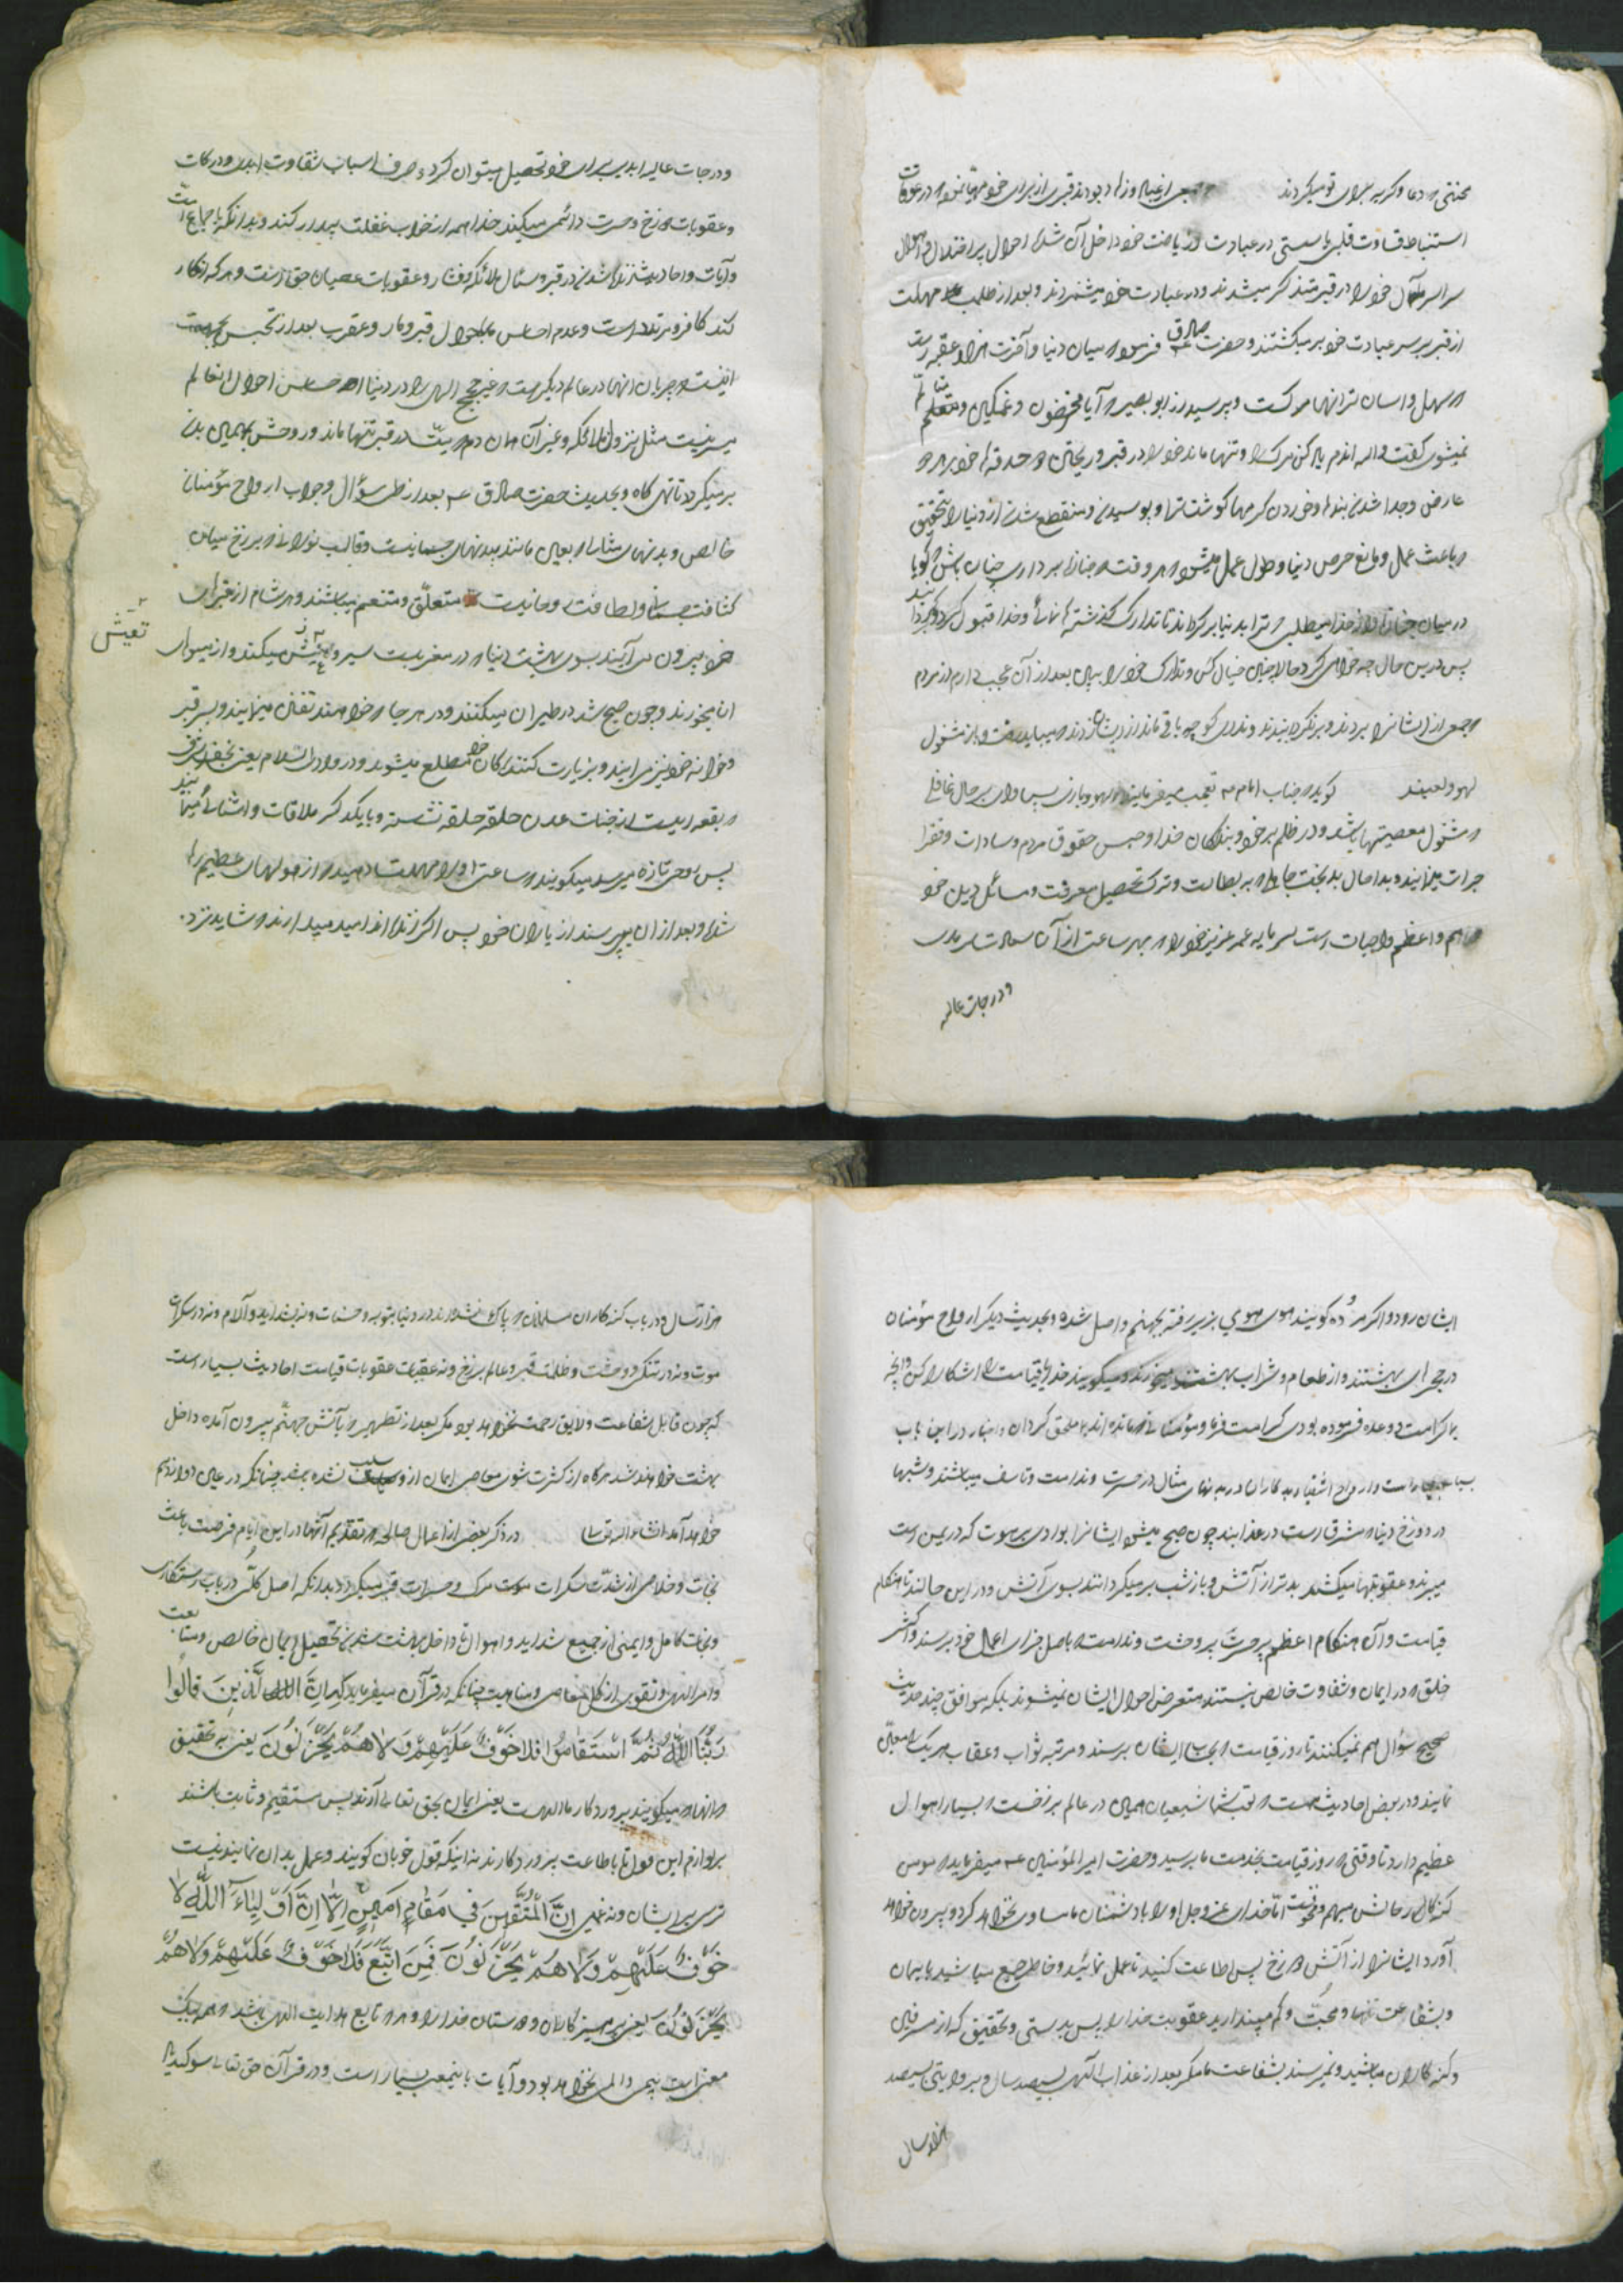 محنتی که دعا و گریه برای تو میکردند جمعی از عباد و زهاد بودند قبری از برای خود مهیا نموده در اوقات
استنباط قساوت قلبی یا سستی در عبادت و ریاضت خود داخل آن شده احوال پر اختلال و اهوال
سراسر مآل خود را در قبر متذکر میشدند و در عبادت خود میشمردند و بعد از طلب مهلت
از قبر بر سر عبادت خود برمیگشتند و حضرت صادق ع فرمود که میان دنیا و آخرت هزار عقبه است
که سهل و آسان تر آنها مرگست و پرسید از ابو بصیر که آیا محزون و غمگین و متألم
نمیشوی گفت والله
عارض و جدا شدن بندها و خوردن کرمها گوشتها و پوسیدن و منقطع شدن از دنیا را بتحقیق
که باعث عمل و مانع حرص دنیا و طول عمل میشود هر وقت که جنازه برداری چنان باش که گویا
در میان جنازه و از خدا میطلبی که ترا بدنیا برگرداند تا تدارک گذشته نمائی و خدا قبول کرد
پس در این حال چه خواهی کرد حالا چنین خیال کن و تدارک خود را ببین بعد از آن عجب دارم از مردم
که جمعی از ایشانرا بردند و برنگردانیدند و ندای کوچ به باقی مانده از ایشان زدند که میباید رفت و باز مشغول
لهو و لعبند گوید که جناب امام ع تعجب میفرمایند از لهو و بازی پس وای بر حال غافلی
که مشغول معصیتها باشد و در ظلم بر خود و بندگان خدا و حبس حقوق مردم و سادات و فقرا
جرات مینمایند و بدا حال بدبخت جاهلی که به بطالت و ترک تحصیل معرفت و مسائل دین خود
که اهم و اعظم واجبات است سرمایه عمر عزیز خود را که بهر ساعت از آن سعادت سرمدی
و درجات عالیه
و درجات عالیه ابدی برای خود تحصیل میتوان کرد صرف اسباب شقاوت ابدی و درکات
و عقوبات دوزخ و حسرت دائمی میکند خدا همه را از خواب غفلت بیدار کند و بدانکه باجماع امت
و آیات و احادیث زنده شدن در قبر و سئوال ملائکه و فشار و عقوبات عصیان حق است و هر که انکار
کند کافر و مرتد است و عدم احساس ما باحوال قبر و مار و عقرب بعد از تجسس
اینست که جریان آنها در عالم دیگر است و غیر حجج الهی را در دنیا احساس احوال آنعالم
میسر نیست مثل نزول ملائکه و غیر آن همان دم که میت در قبر تنها ماند روحش بهمین بدن
برمیگردد تا تهی گاه و بحدیث حضرت صادق ع بعد از طی سؤال و جواب ارواح مؤمنان
خالص و بدنهای مثالی که بعین مانند بدنهای جسمانیست و قالب نورانی در برزخ میان
کثافت جسمانی و لطافت روحانیت متعلق و متنعم میباشند و هر شام از قبرهای
خود بیرون می آیند بسوی بهشت دنیا که در مغربست سیر و تعیش میکنند و از میوهای
تعیش
آن میخورند و چون صبح شد در طیران میکنند و در هر جا که خواهند تفنن مینمایند و بسر قبر
و خانه خود نیز می آیند و بزیارت کنندگان خود مطلع میشوند و در وادی السلام یعنی نجف اشرف
که بقعه ایست از جنات عدن حلقه حلقه نشسته و با یکدیگر ملاقات و آشنائی مینمایند
پس روحی تازه میرسد میگویند که ساعتی او را مهلت دهید که از هولهای عظیم رها
شده و بعد از آن پرسند از یاران خود پس اگر زنده اند امید میدارند که شاید نزد
ایشان رود و اگر مرده گویند هوی هوی بزیر رفته بجهنم واصل شده و بحدیث دیگر ارواح مؤمنان
در حجرهای بهشتند و از طعام و شراب بهشت میخورند و میگویند خدایا قیامت را آشکارا کن و آنچه
بما کرامت و وعده فرموده بودی کرامت فرما و مؤمنانی که مانده اند بما ملحق گردان و اخبار در این باب
بسیار است و ارواح اشقیا و بدکاران در بدنهای مثالی در حسرت و ندامت و تاسف میباشند و شبها
در دوزخ دنیا که مشرقست در عذابند چون صبح میشود ایشانرا بوادی برهوت که در یمن است
میبرند و عقوبتها میکشند بدتر از آتش و باز شب برمیگردانند بسوی آتش و در این حالند تا هنگام
قیامت و آن هنگام اعظم پر حسرت پر وحشت و ندامت که باصل جزای اعمال خود برسند و اکثر
خلق که در ایمان و شقاوت خالص نیستند متعرض احوال ایشان نمیشوند بلکه موافق چند حدیث
صحیح سؤال هم نمیکنند تا روز قیامت که بحساب ایشان برسند و مرتبه ثواب و عقاب هر یک را معین
نمایند و در بعض احادیث هست که بشما شیعیان همین در عالم برزخست که بسیار اهوال
عظیم دارد تا وقتی که روز قیامت بخدمت ما برسید و حضرت امیرالمؤمنین ع میفرماید که مومن
گنه کار حالش مبهم و مخوفست اما خدای عز و جل او را با دشمنان ما مساوی نخواهد کرد و بیرون خواهد
آورد ایشانرا از آتش دوزخ پس اطاعت کنید تا عمل نمائید و خاطر جمع مباشید بایمان
و بشفاعت تنها و محبت و کم مپندارید عقوبت خدا را پس بدرستی و تحقیق که از مسرفین
و گنه کاران مباشید و نمیرسند بشفاعت ما مگر بعد از عذاب الهی بسیصد سال و بروایتی سیصد
هزار سال
هزار سال و در باب گنه کاران مسلمانان که پاک نشده اند در دنیا بتوبه و حسنات و نه بشداید و آلام و نه در سکرات
موت و نه در تنگی و وحشت و ظلمت قبر و عالم برزخ و نه عقبات عقوبات قیامت احادیث بسیار است
که چون قابل شفاعت و لایق رحمت نخواهد بود مگر بعد از تطهیر بآتش جهنم بیرون آمده داخل
بهشت خواهند شد هرگاه از کثرت شومی معاصی ایمان از و سلب نشده باشد چنانکه در عین دوازدهم
خواهد آمد انشاءالله تعالی در ذکر بعض از اعمال صالحه که تقدیم آنها در این ایام فرصت باعث
نجات و خلاصی از شدت سکرات موت مرگ و حسرات قبر میگردد بدانکه اصل کلی در باب رستگاری
و نجات کامل و ایمنی از جمیع شداید و اهوال و داخل بهشت شدن تحصیل ایمان خالص و متابعت
اوامر الهی و تقوی از کل معاصی و مناهیست چنانکه در قرآن میفرماید که اِنَّ الَّذینَ قالُوا
رَبُّنَا اللهُ ثُمَّ اسْتَقامُوا فَلا خَوْفٌ عَلَیْهِمْ وَلا هُمْ یَحْزَنُونَ یعنی به تحقیق
که آنها که میگویند پروردگار ما اللهست یعنی ایمان بحق تعالی آرند پس مستقیم و ثابت باشند
بر لوازم این قول تا باطاعت پروردگارند نه اینکه قول خوبان گویند و عمل بدان نمایند نیست
ترسی بر ایشان و نه غمی اِنَّ الْمُتَّقینَ فی مَقامٍ اَمینٍ اَلا اِنَّ اَوْلِیاءَ اللّهِ لا
خَوْفٌ عَلَیْهِمْ وَلا هُمْ یَحْزَنُونَ فَمَنِ اتَّبَعَ فَلا خَوْفٌ عَلَیْهِمْ وَلا هُمْ
یَحْزَنُونَ یعنی پرهیزکاران و دوستان خدا را و هر که تابع هدایت الهی باشد
بیمی و المی نخواهد بود و آیات باینمعنی بسیار است و در قرآن حق تعالی سوگند